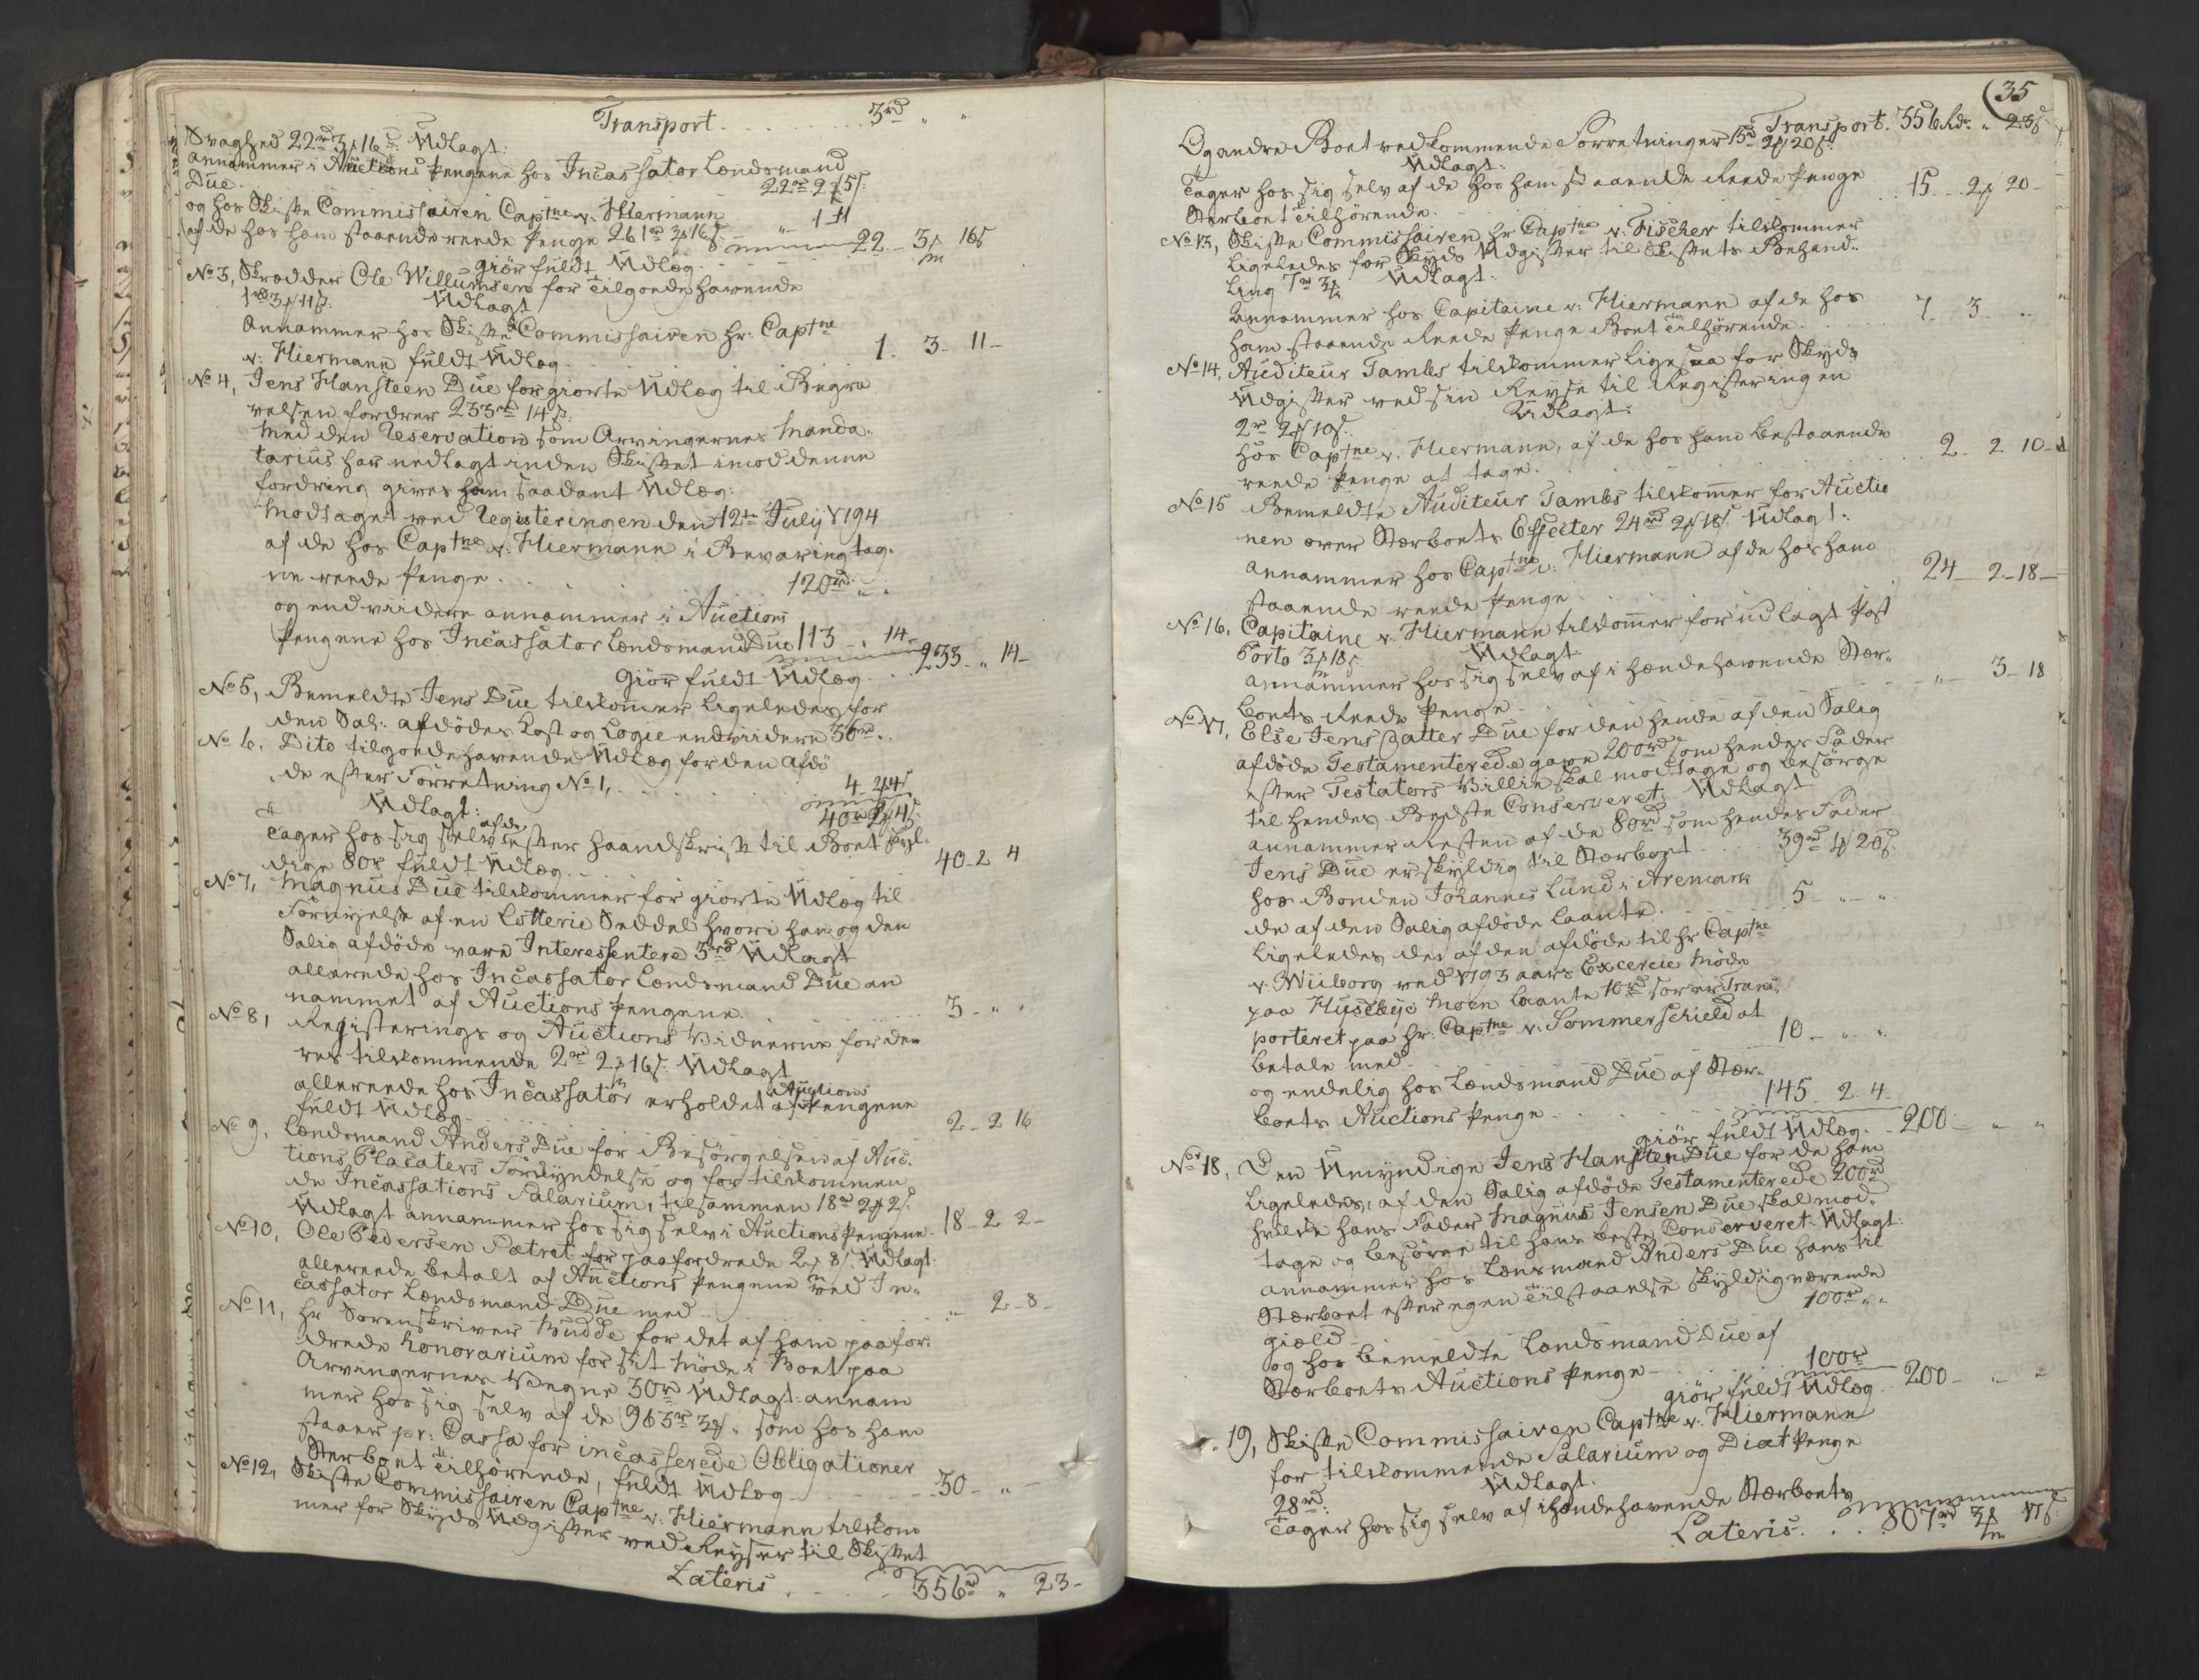 Transport. . . . . . . . . 3rd „ „
Svaghed 22rd 3 16 s: Udlagt:
annammer i Auctions Pengene hos Incassator Lændsmand
Due. 22rd 2 5 s:
og hos Skifte Commissairen Captne v. Hiermann „ 1 11
af de hos ham staaende reede Penge 261rd 3 16 s:
giör fuldt Udlæg. 22. 3 16 s
No 3, Skrædder Ole Willumsen for tilgoedehavende
1rd 3 11 s: Udlagt
annammer hos Skifte Commissairen Hr: Captne
v: Hiermann fuldt Udlæg . . . 1. 3- 11-
No 4, Jens Hansteen Due for giorte Udlæg til Begra
velsen fordrer 233rd 14 s:
Med den Reservation som Arvingernes Manda-
tarius har nedlagt inden Skiftet imod denne
fordring gives ham saadant Udlæg:
Modtaget ved Registeringen den 12te July 1794
af de hos Captne v. Hiermann i Bevaring tag-
ne reede Penge . . . 120rd „ .
og end viidere annammer i Auctions
Pengene hos Incassator Lændsmand Due 113 - „ 14-
giör fuldt Udlæg . . . 233. „ 14-
No 5, Bemeldte Jens Due tilkomer ligeledes for
den Sal: afdödes Kost og Logie endviidere 36rd.
No 6. Dito tilgoedehavende Udlæg for den afdö
de efter Forretning No 1, . . . 4- 2 4 s
Udlagt: 40rd 2 4 s:
Tager hos sig selv af de efter Haandskrift til Boet skyl-
dige 80rd fuldt Udlæg. . . 40- 2 4
No 7, Magnus Due tilkommer for giorte Udlæg til
Fornyelse af en Lotterie Seddel hvori han og den
Salig afdöde vare Interessentere 3rd Udlagt
allerede hos Incassator Lændsmand Due an
nammet af Auctions Pengene. . . . 3- „ .
No 8, Registerings og Auctions Vidnerne for de-
res tilkommende 2rd 2 16 s: Udlagt
allereede hos Incassator erholdet af Auctions Pengene
fuldt Udlæg. . . . 2- 2 16
No 9, Lændsmand Anders Due for Besörgelsen af Auc-
tions Placaters Forkyndelse og for tilkommen
de Incassations Salarium, tilsammen 18rd 2 2 s.
Udlagt annammer hos sig selv i Auctions Pengene. 18- 2 2-
No 10, Ole Pedersen Sætret for paafordrede 2 8 s. Udlagt:
allereede betalt af Auctions Pengene ved In-
cassator Lændsmand Due med . . . „ 2- 8-
No 11, Hr Sorenskriver Budde for det af ham paafor-
drede Honorarium for sit Möde i Boet paa
Arvingernes Vegne 30rd Udlagt: annam
mer hos sig selv af de 963rd 3 . som hos ham
staaer pr: Cassa for incasserede Obligationer
Sterboet tilhörende, fuldt Udlæg . . . 30- „ -
No 12, Skifte Commissairen Captne v. Hiermann tilkom
mer for Skyds Udgifter ved Reyser til Skiftet
Lateris . . . 356rd „ 23-
35
Transport. 356 Rdr. „ 23 s
Og andre Boet vedkommende Forretninger 15rd 2 20 s:
Udlagt:
Tager hos sig selv af de hos ham staaende Reede Penge
Sterboet tilhörende. . . . 15. - 2 20-
No 13, Skifte Commissairen Hr Captne v: Fischer tilkommer
ligeledes for Skyds Udgifter til Skiftets Behand-
ling 7rd 3 Udlagt:
annammer hos Capitaine v: Hiermann af de hos
ham staaende Reede Penge Boet tilhörende. . . . 7- 3- „
No 14, Auditeur Tambs tilkommer ligesaa for Skyds
Udgifter ved sin Reyse til Registeringen
2rd 2 10 s. Udlagt:
hos Captne v. Hiermann, af de hos ham bestaaende
reede Penge at tage . . . 2- 2 10-
No 15 Bemeldte Auditeur Tambs tilkomer for Auctio
nen over Sterboets Effecter 24rd 2 18 s. Udlagt:
annammer hos Captne v: Hiermann af de hos ham
staaende reede Penge . . . 24- 2- 18-
No 16, Capitaine v. Hiermann tilkomer for udlagt Post
Porto 3 18 s. Udlagt
annammer hos sig selv af i hændehavende Stær-
boets Reede Penge . . . „ - 3- 18
No 17, Else Jens Datter Due for den hende af den Salig
afdöde Testamenterede gave 200rd som hendes Fader
efter Testators Villie skal modtage og besörge
til hendes Bedste Conserveret. Udlagt
annammer Resten af de 80rd som hendes Fader
Jens Due er skyldig til Stærboet . . . 39rd 1 20 s.
hos Bonden Johannes Lund i Aremark
de af den Salig afdöde laante. . . . 5- „ - „
Ligeledes de af den afdöde til Hr Captne
v. Wiiborg ved 1793 aars Excercie Möde
paa Huseby Moen laante 10rd som er Trans-
porteret paa Hr: Captne v: Sommerschield at
betale med . . . 10- „ „
og endelig hos Lændsmand Due af Stær-
boets Auctions Penge . . . 145. 2. 4-
giör fuldt Udlæg. - 200- „ „
No 18, Den Umyndige Jens Hansteen Due for de ham
ligeledes, af den Salig afdöde Testamenterede 200rd
hvilke hans Fader Magnus Jensen Due skal mod-
tage og besörge til hans beste Conserveret. Udlagt:
annammer hos Lænsmand Anders Due hans til
Stærboet efter egen tilstaaelse skyldigværende
giæld . . . 100rd „ „
og hos bemeldte Landsmand Due af
Stærboets Auctions Penge - . . . 100rd
giör fuldt Udlæg . . 200- „ „
19, Skifte Commissairen Captne v. Hiermann
for tilkommende Salarium og Diæt Penge
28rd: Udlagt.
Tager hos sig selv af ihændehavende Stærboets
Lateris. . . . 807rd 3 17 s.